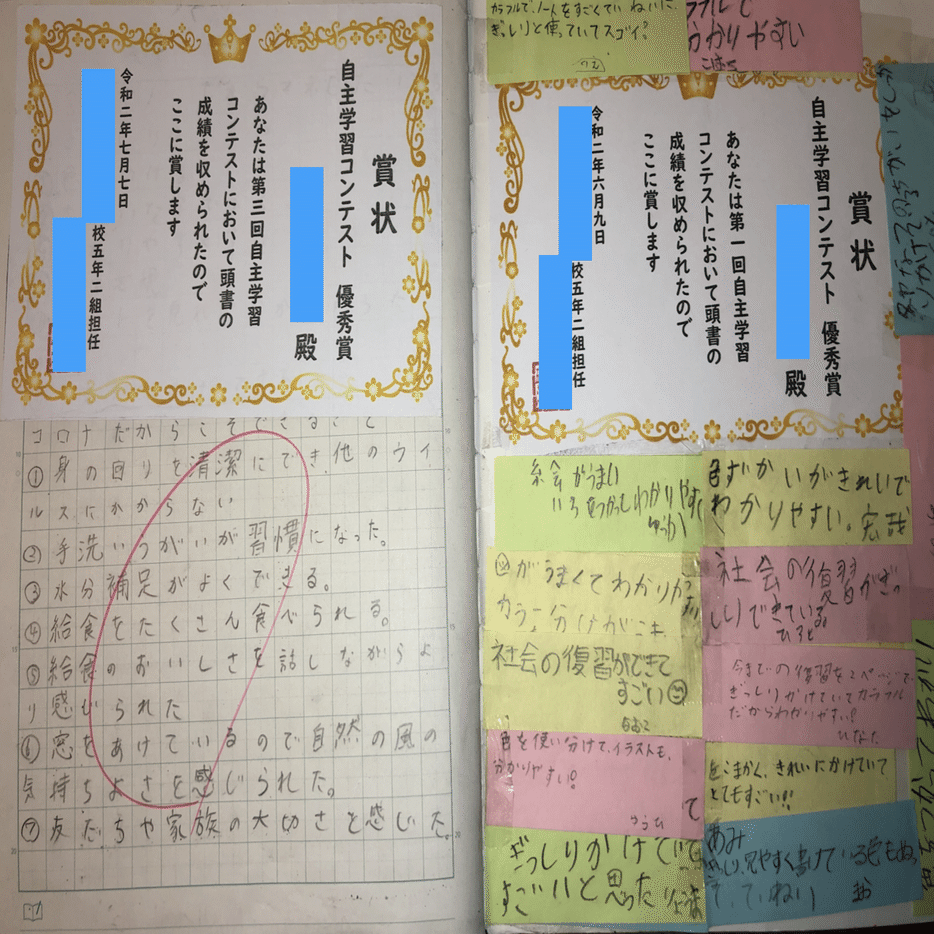 賞状
自主学習コンテスト 優秀賞
殿
あなたは第三回自主学習
コンテストにおいて頭書の
成績を収められたので
ここに賞します
令和二年七月七日
校五年二組担任
コロナだからこそできること
①身の回りを清潔にでき、他のウイ
ルスにかからない
②手洗いうがいが習慣になった。
③水分補足がよくできる。
④給食をたくさん食べられる。
⑤給食のおいしさを話しながらよ
り感じられた
⑥窓をあけているので自然の風の
気持ちよさを感じられた。
⑦友だちや家族の大切さと感じた。
カラフルで、ノートをすごくていねいに、
ぎっしりと使っていてスゴイ?
ラフルで
わかりやすい
こはる
賞状
自主学習コンテスト 優秀賞
殿
あなたは第一回自主学習
コンテストにおいて頭書の
成績を収められたので
ここに賞します
令和二年六月九日
校五年二組担任
絵がうまい
いろをつかってわかりやすい
ゆうか
色ずかいがきれいで
わかりやすい。宏哉
がうまくてわかりや
カラー分けが
社会の復習がぎっ
しりできている。
ひろと
社会の復習ができて
すごい
今までの復習を2ページで、
ぎっしりかけていてカラフル
だからわかりやすい!
ひなた
色を使い分けて、イラストも、
分かりやすい。
ゆうひ
て
をこまかく、きれいにかけていて
とてもすごい!!
ぎっしりかけていて
すごいと思った
あみ
見やすく書けている